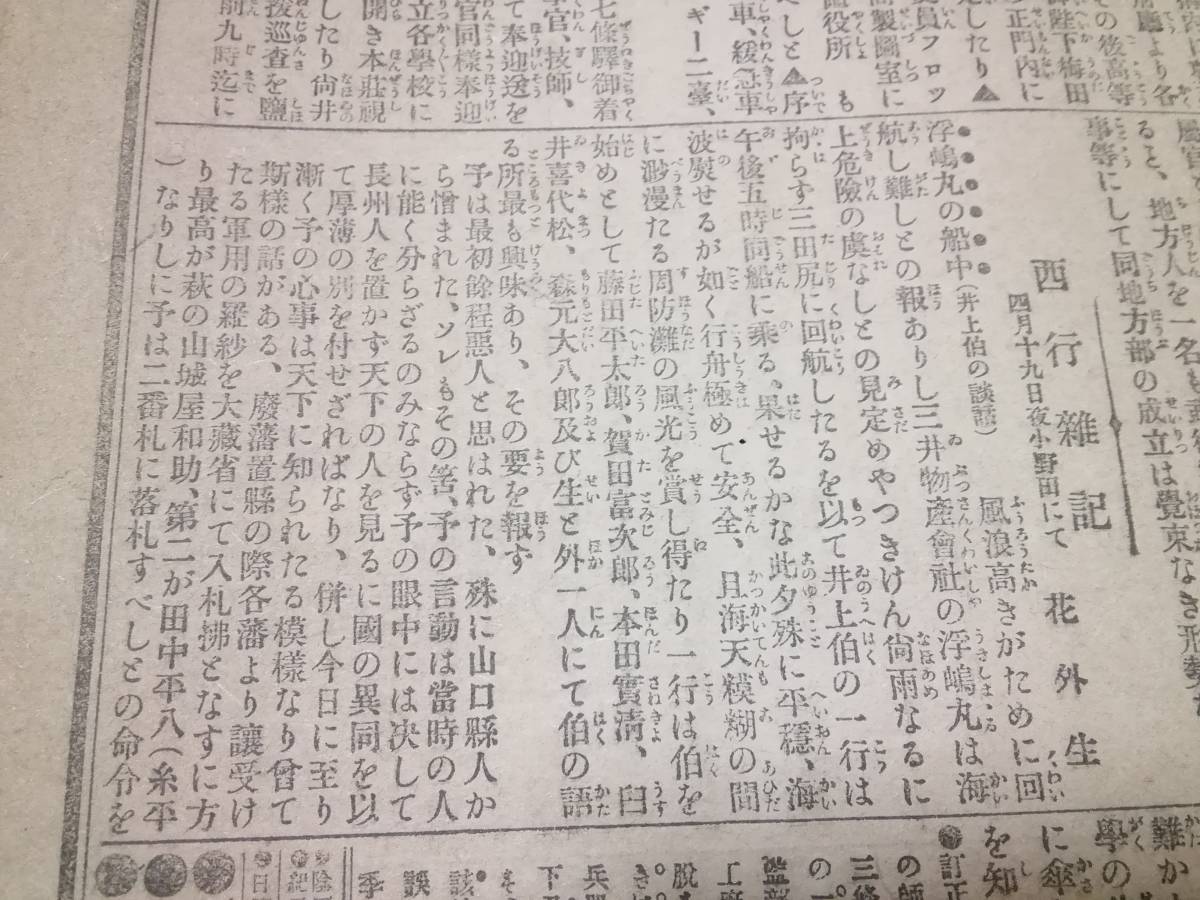 その後高等
陛下梅田
正門内に
定したり▲
員フロッ
製圖室に
役所も
べしと▲序
車、緩急車
ギー二臺、
七條驛御着
官、技師、
て奉迎送を
官同様奉迎
立各學校に
開き本莊視
したり尙井
拨巡査を鹽
前九時迄に
ると、地方人を一名も
事等にして同地方部の成立は覺束なき形勢な
西行雜記 花外生
四月十九日夜小野田にて
浮嶋丸の船中(井上伯の談話) 風浪高きがために回
航し難しとの報ありし三井物産會社の浮嶋丸は海
上危險の虞なしとの見定めやつきけん尙雨なるに
拘らす三田尻に回航したるを以て井上伯の一行は
午後五時同船に乘る、果せるかな此夕殊に平穩、海
波熨せるが如く行舟極めて安全、且海天糢糊の間
に渺漫たる周防灘の風光を賞し得たり一行は伯を
始めとして藤田平太郎、賀田富次郎、本田實淸、臼
井喜代松、森元大八郎及び生と外一人にて伯の語
る所最も興味あり、その要を報す
予は最初餘程惡人と思はれた、殊に山口縣人か
ら憎まれた、ソレもその筈、予の言動は當時の人
に能く分らざるのみならず予の眼中には決して
長州人を置かず天下の人を見るに國の異同を以
て厚薄の別を付せざればなり、併し今日に至り
漸く予の心事は天下に知られたる模樣なり曾て
斯樣の話がある、廢藩置縣の際各藩より讓受け
たる軍用の羅紗を大藏省にて入札拂となすに方
り最高が萩の山城屋和助、第二が田中平八(糸平
)なりしに予は二番札に落札すべしとの命令を
難か
學の
に傘
を知
●訂正
の師
三條
の一
監部
工廠
脱
兵
下
そ
該
誤
季